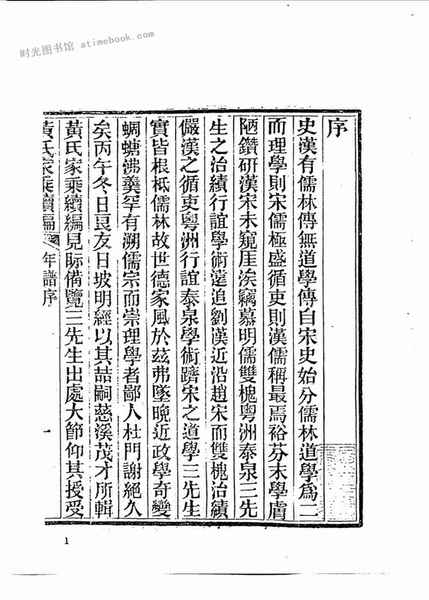 时光图书馆 atimebook.com
序
史漢有儒林傳無道學傳自宋史始分儒林道學爲二
而理學則宋儒極盛循吏則漢儒稱最焉裕芬末學膚
陋鑽研漢宋未窺厓涘竊慕明儒雙槐粵洲泰泉三先
生之治績行誼學術遠追劉漢近沿趙宋而雙槐治績
儼漢之循吏粵洲行誼泰泉學術躋宋之道學三先生
實皆根柢儒林故世德家風於茲弗墜晚近政學奇變
蜩螗沸羹罕有溯儒宗而崇理學者鄙人杜門謝絕久
矣丙午冬日良友日坡明經以其喆嗣慈溪茂才所輯
黃氏家乘續編見眎備覽三先生出處大節仰其授受
黃氏家乘續編 年譜序 一
1